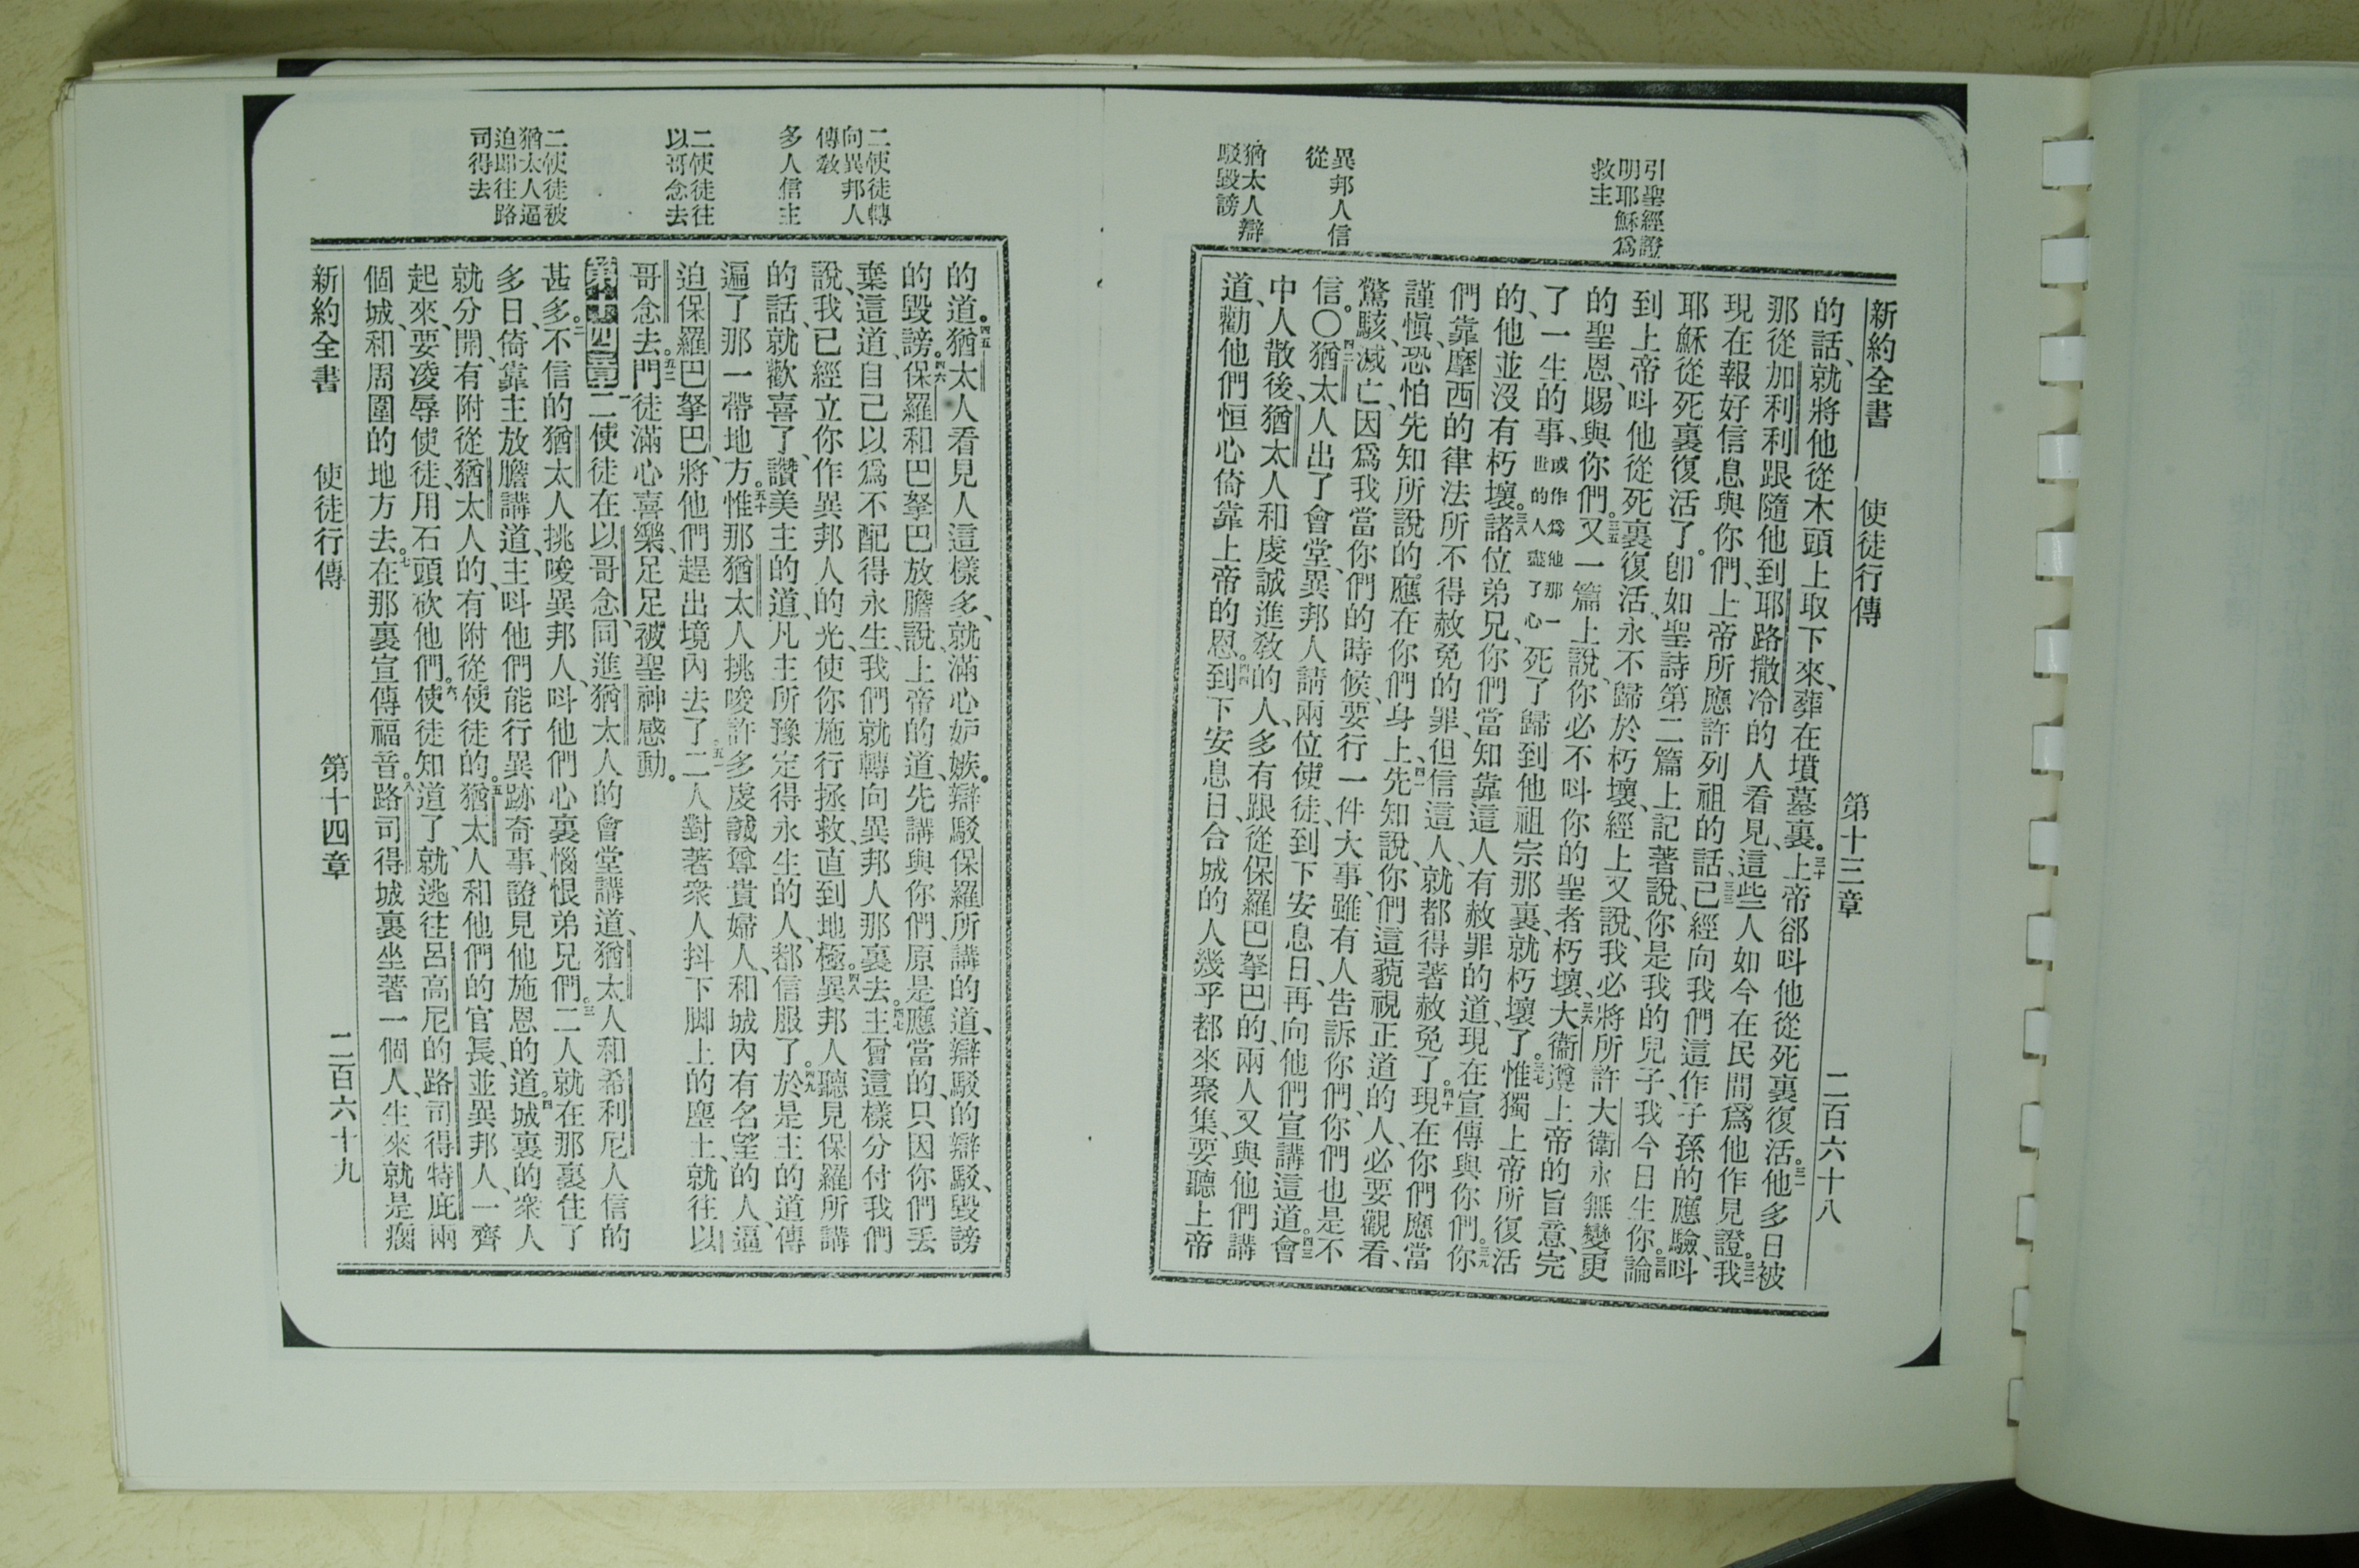 引聖經證
明耶穌爲
救主
異邦人信
從
猶太人辯
駁毀謗
新約全書 使徒行傳 第十三章 二百六十八
的話、就將他從木頭上取下來、葬在墳墓裏。三十上帝卻呌他從死裏復活。三一他多日被
那從加利利跟隨他到耶路撒冷的人看見、這些人如今在民間爲他作見證。三二我
現在報好信息與你們、上帝所應許列祖的話、三三已經向我們這作子孫的應驗、呌
耶穌從死裏復活了。卽如聖詩第二篇上記著說、你是我的兒子、我今日生你。三四論
到上帝呌他從死裏復活、永不歸於朽壞、經上又說、我必將所許大衛永無變更
的聖恩、賜與你們。三五又一篇上說、你必不呌你的聖者朽壞、三六大衞遵上帝的旨意、完
了一生的事、或作爲他那一世的人盡了心死了歸到他祖宗那裏、就朽壞了。三七惟獨上帝所復活
的、他並沒有朽壞。三八諸位弟兄、你們當知靠這人有赦罪的道、現在宣傳與你們。三九你
們靠摩西的律法所不得赦免的罪、但信這人、就都得著赦免了。四十現在你們應當
謹愼、恐怕先知所說的應在你們身上、四一先知說、你們這藐視正道的人、必要觀看、
驚駭、滅亡、因爲我當你們的時候、要行一件大事、雖有人告訴你們、你們也是不
信。〇四二猶太人出了會堂、異邦人請兩位使徒、到下安息日、再向他們宣講這道。四三會
中人散後、猶太人和虔誠進敎的人、多有跟從保羅巴拏巴的、兩人又與他們講
道、勸他們恒心倚靠上帝的恩。四四到下安息日、合城的人幾乎都來聚集、要聽上帝
二使徒轉
向異邦人
傳敎
多人信主
二使徒往
以哥念去
二使徒被
猶太人逼
迫即往路
司得去
的道。四五猶太人看見人這樣多、就滿心妒嫉。辯駁保羅所講的道、辯駁的辯駁、毀謗
的毀謗。四六保羅和巴拏巴放膽說、上帝的道、先講與你們、原是應當的、只因你們丟
棄這道、自己以爲不配得永生、我們就轉向異邦人那裏去。四七主曾這樣分付我們
說、我已經立你作異邦人的光、使你施行拯救、直到地極。四八異邦人聽見保羅所講
的話、就歡喜了、讚美主的道、凡主所豫定得永生的人、都信服了。四九於是主的道傳
遍了那一帶地方。五十惟那猶太人挑唆許多虔誠尊貴婦人、和城內有名望的人、逼
迫保羅巴拏巴、將他們趕出境內去了。五一二人對著衆人抖下脚上的塵土、就往以
哥念去。五二門徒滿心喜樂足足被聖神感動。
第十四章一二使徒在以哥念、同進猶太人的會堂講道、猶太人和希利尼人信的
甚多。二不信的猶太人挑唆異邦人、呌他們心裏惱恨弟兄們。三二人就在那裏住了
多日、倚靠主放膽講道、主呌他們能行異跡奇事、證見他施恩的道。四城裏的衆人
就分開、有附從猶太人的、有附從使徒的。五猶太人和他們的官長、並異邦人、一齊
起來、要凌辱使徒、用石頭砍他們。六使徒知道了、就逃往呂高尼的路司得特庇兩
個城、和周圍的地方去。七在那裏宣傳福音。八路司得城裏坐著一個人、生來就是瘸
新約全書 使徒行傳 第十四章 二百六十九